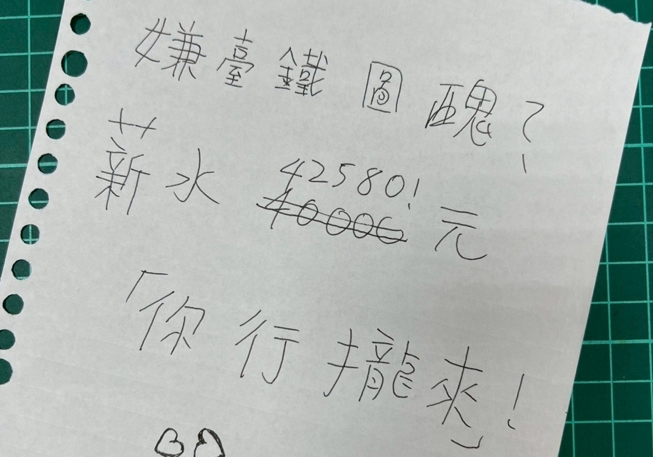 嫌臺鐵圖醜？
42580！
薪水 40000 元
「你行攏來！」